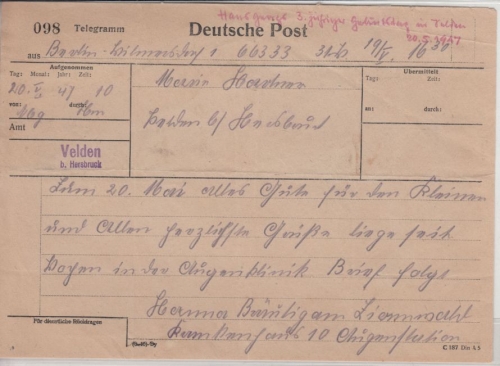 Hansgeorgs 3. jähriger Geburtstag in Velden
20.5.1947
098 Telegramm Deutsche Post
aus Berlin-Wilmersdorf 1 66333 19/V 16
Aufgenommen
Tag: Monat: Jahr: Zeit:
20. V 47 10
von: durch:
Amt
Velden
b. Hersbruck
Maria
Velden b/ Hersbruck
Übermittelt
Tag: Zeit:
an: durch:
Zum 20. Mai alles Gute für den Kleinen
und Allen herzlichste Grüße liege seit
Wochen in der Augenklinik Brief folgt
Hanna Bräutigam
Krankenhaus 10 Augenstation
Für dienstliche Rückfragen
C 187 Din A 5